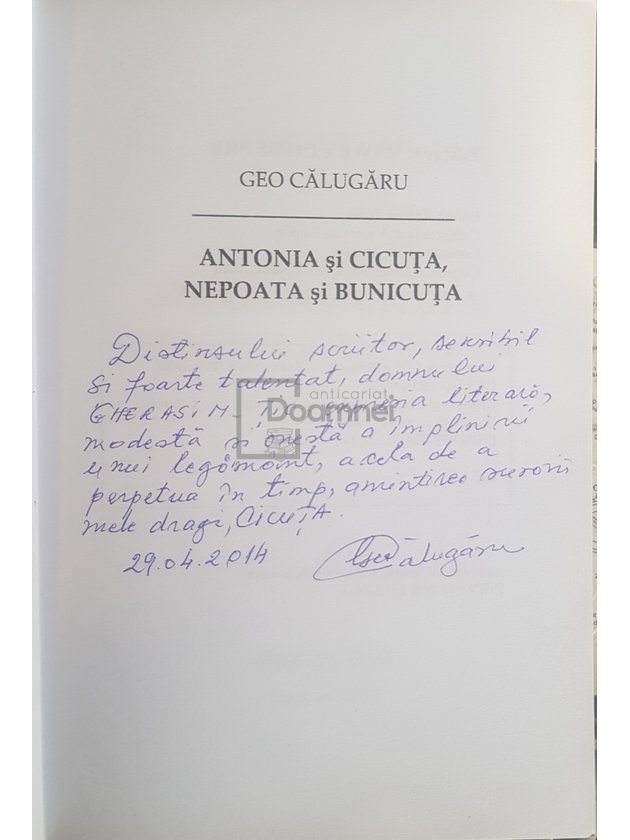 GEO CĂLUGĂRU
ANTONIA și CICUȚA,
NEPOATA și BUNICUȚA
Distinsului scriitor, sensibil
și foarte talentat, domnului
GHERASIM expresia literară,
modestă și onestă a împlinirii
unui legământ, acela de a
perpetua în timp, amintirea surorii
mele dragi, CICUȚA.
29.04.2014 Geo Călugăru
anticariat
Doamnei